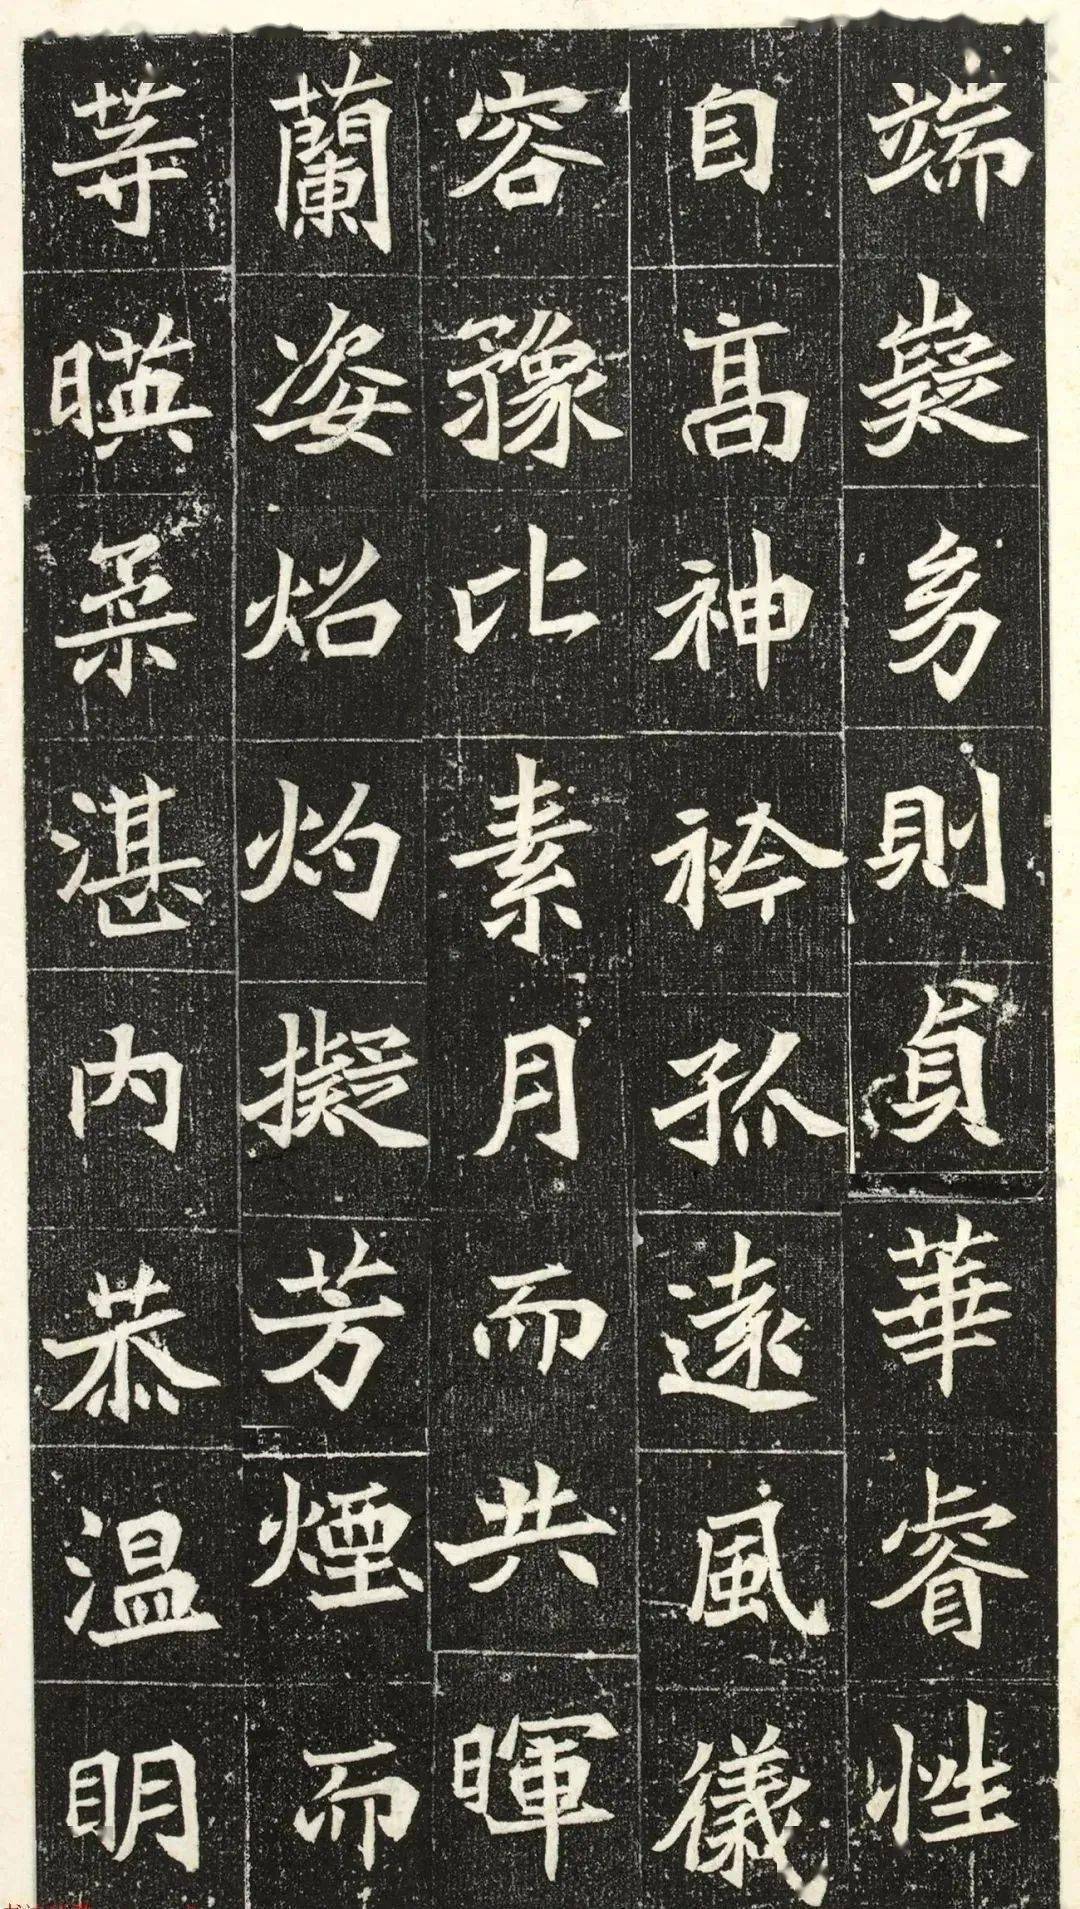 端嶷多則貞華睿性
自高神衿孤遠風儀
容豫比素月而共暉
蘭姿炤灼擬芳煙而
等暎柔湛內恭溫明